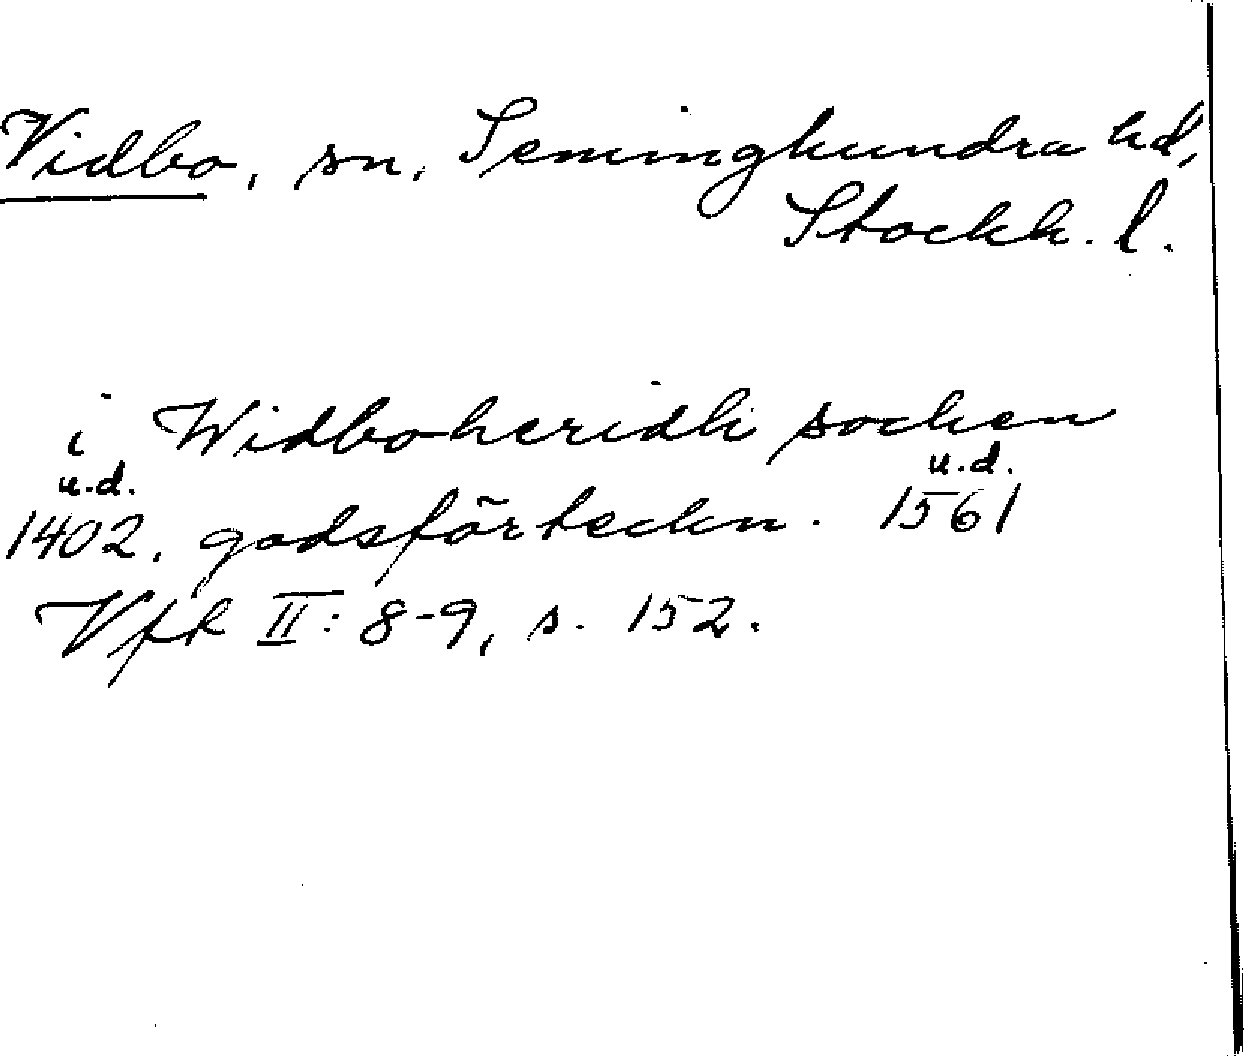 Vidbo, sn, Seminghundra hd,
Stockh. l.
i Widboheridh socken
u.d. u.d.
1402. godsförteckn. 1561
Vfr II: 8-9, s. 152.